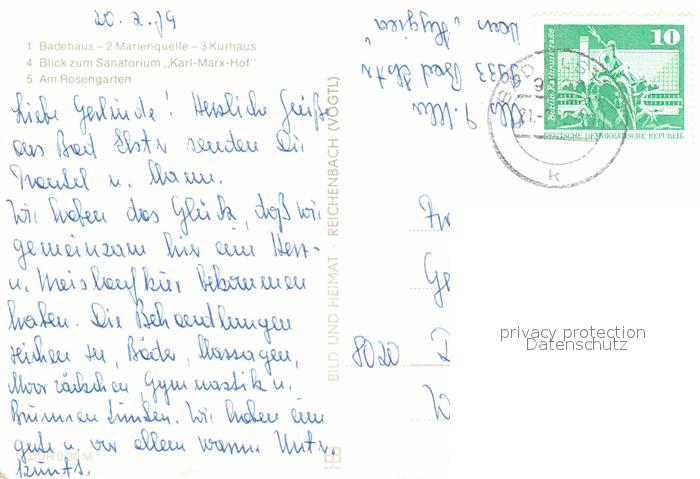 20.2.79
1 Badehaus – 2 Marienquelle – 3 Kurhaus
4 Blick zum Sanatorium „Karl-Marx-Hof"
5 Am Rosengarten
Liebe Gerlinde! Herzliche Grüße
aus Bad Elster senden Dir
u. Mann.
Wir haben das Glück, daß wir
gemeinsam hier eine Herz-
u. Kreislaufkur bekommen
haben. Die Behandlungen
reichen zu, Bäder, Massagen,
Moorpäckchen, Gymnastik u.
Brunnen trinken. Wir haben eine
gute u. vor allem warme Unter-
kunft.
DDR 0,20 M
BILD UND HEIMAT · REICHENBACH (VOGTL)
9933 Bad Elster
10
Berlin, Rathausstraße
DEUTSCHE DEMOKRATISCHE REPUBLIK
k
8020
privacy protection
Datenschutz